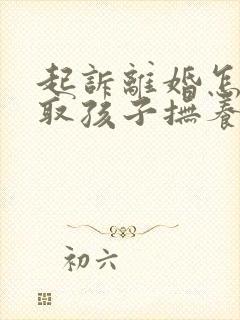 起訴離婚怎
取孩子撫養
初六